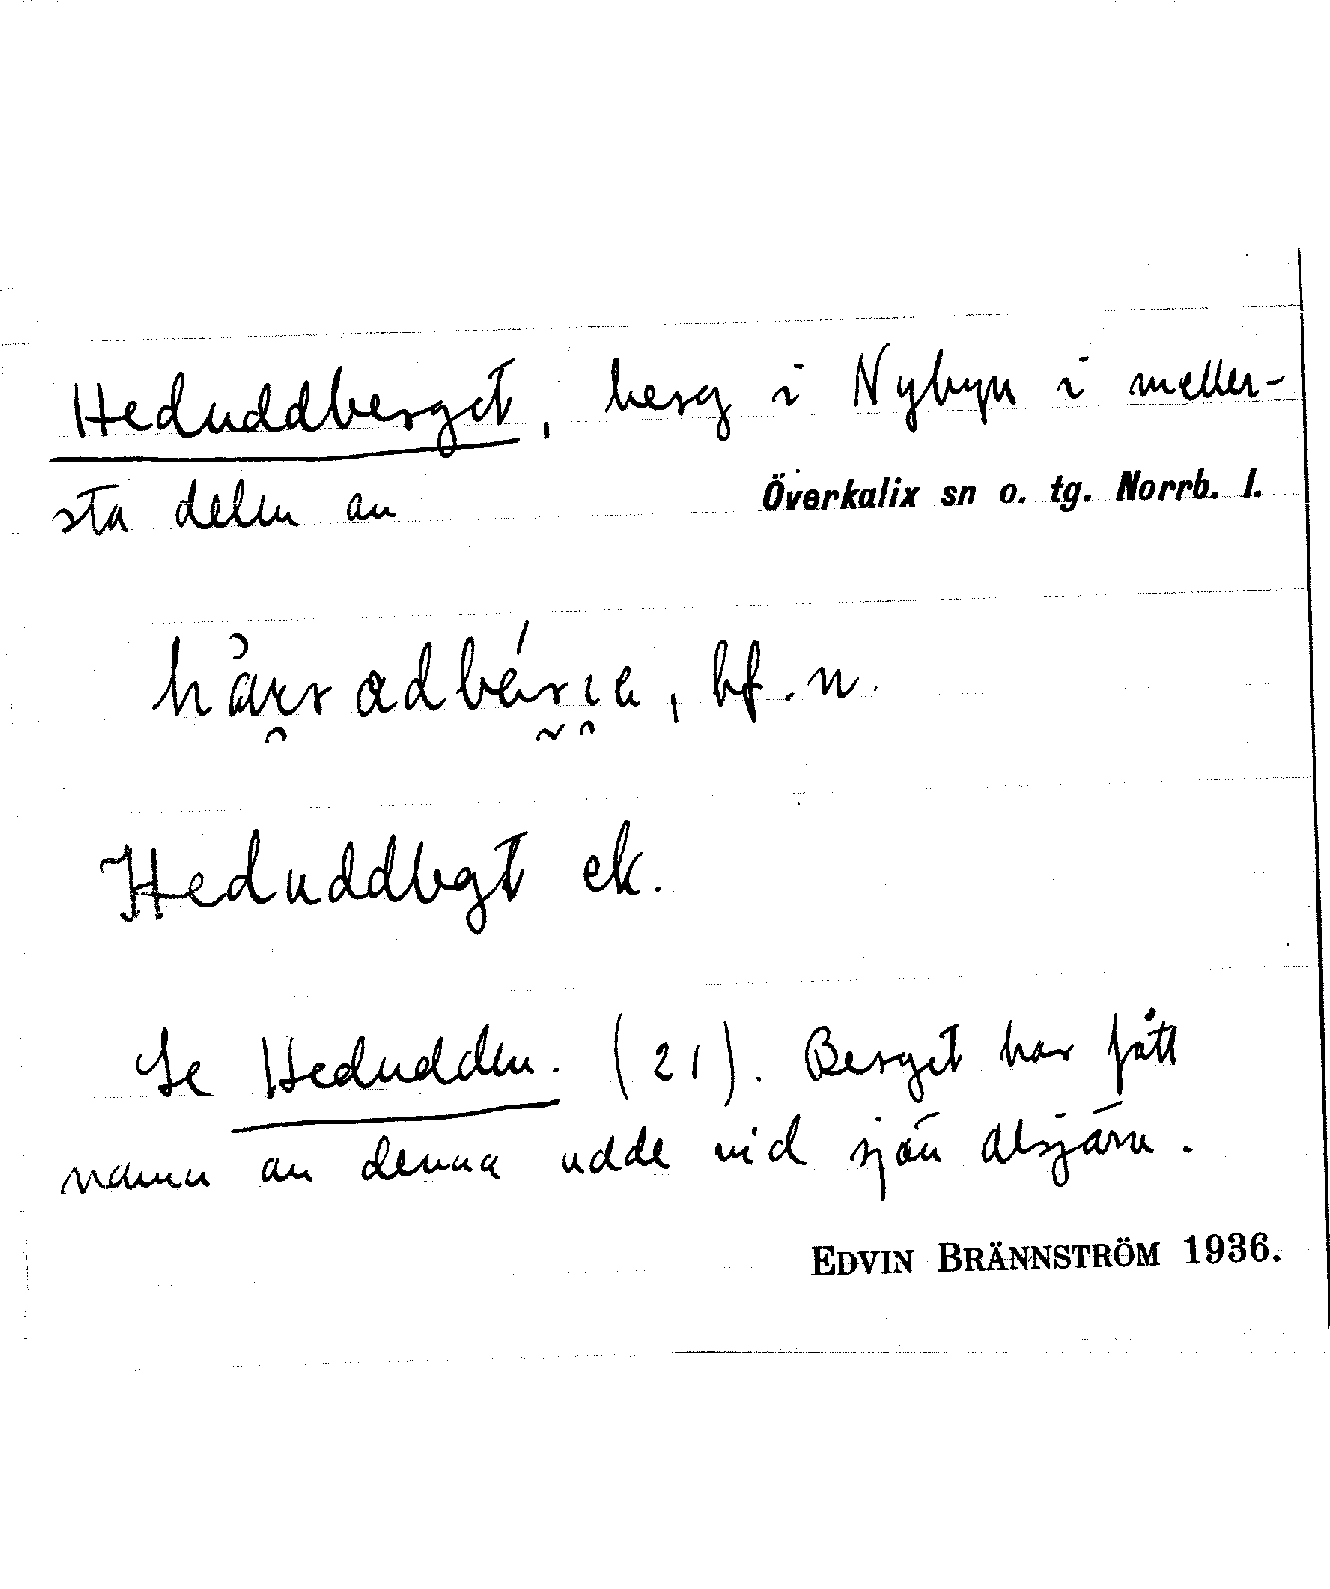 Heduddberget, berg i Nybyn i meller-
sta delen av Överkalix sn o. tg. Norrb. l.
bf. n.
Heduddbgt ek.
Se Hedudden. (21). Berget har fått
namn av denna udde vid sjön Alsjärv.
EDVIN BRÄNNSTRÖM 1936.